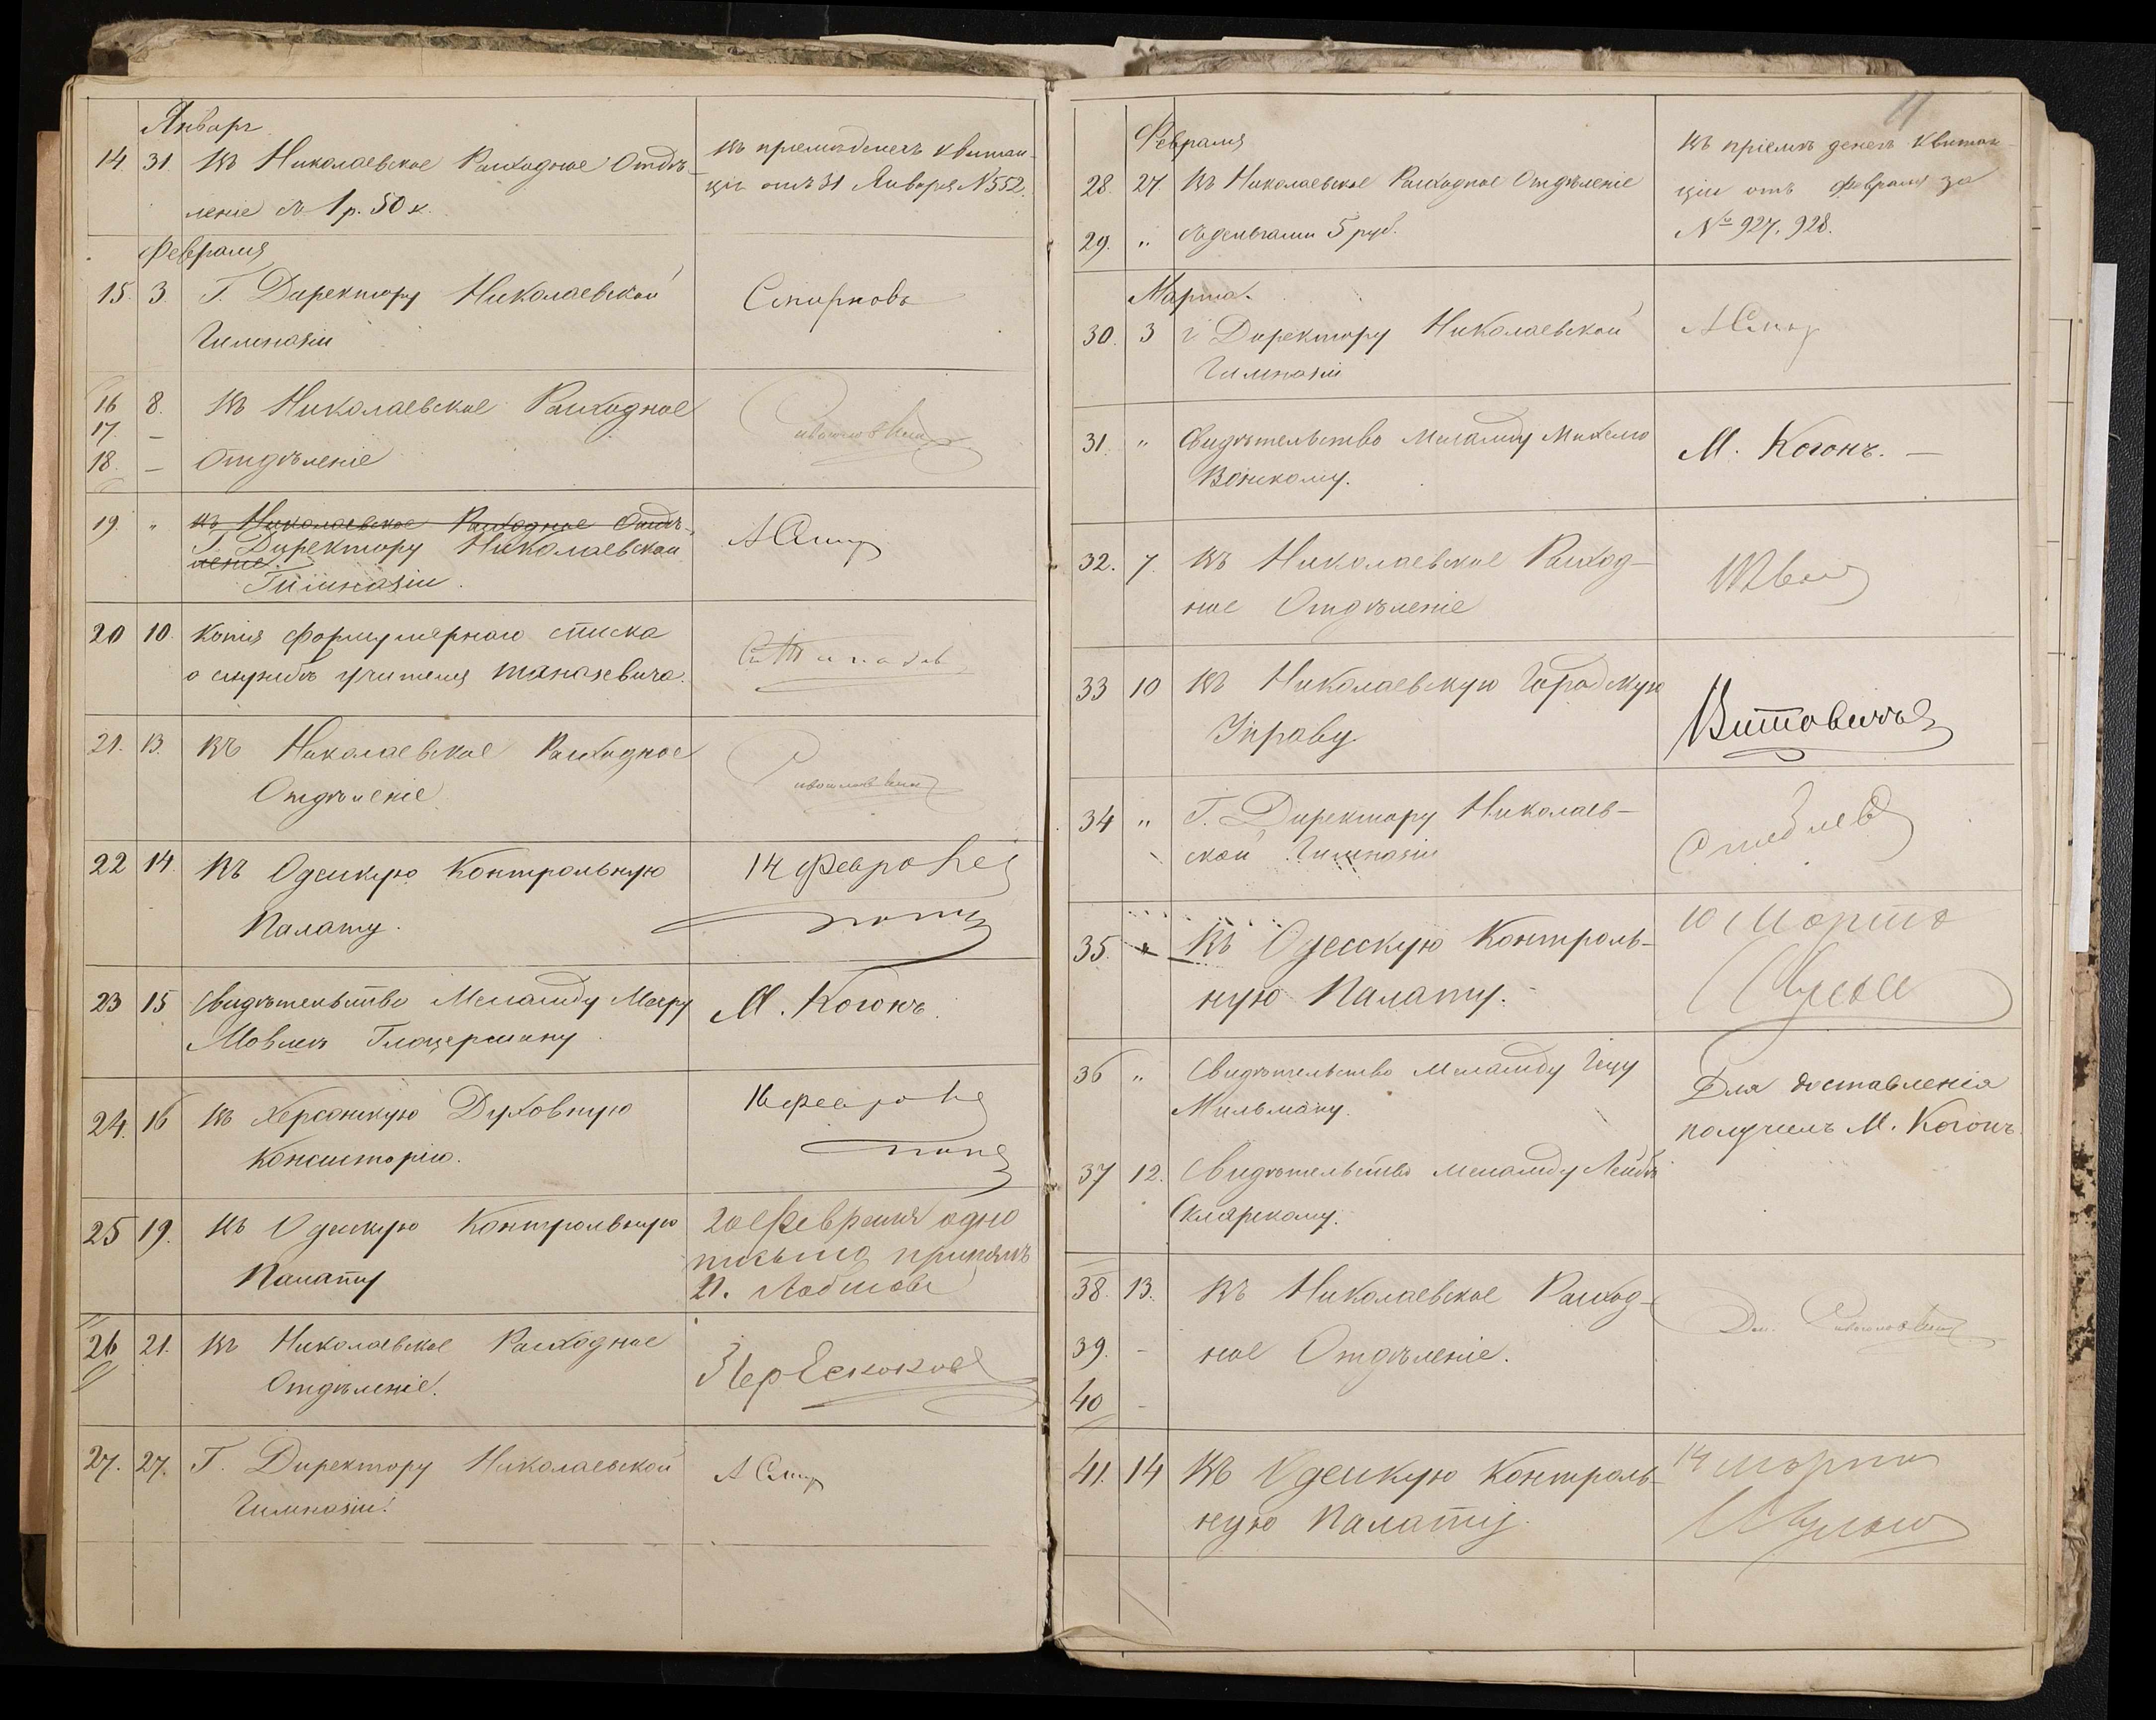 Январь
14. 31. Въ Николаевское Расходное Отдѣ-
леніе съ 1 р. 50 к.
Въ пріемѣ денегъ квитан-
ція отъ 31 Января №552.
Февраля
15. 3. Г. Директору Николаевской
Гимназіи
Смирновъ
16 8. Въ Николаевское Расходное
17. —
18. — Отдѣленіе
19. " Въ Николаевское Расходное Отдѣ-
Г. Директору Николаевской
леніе.
Гимназіи.
20 10. Копія формулярнаго списка
о службѣ учителя
21. 13. Въ Николаевское Расходное
Отдѣленіе
22 14. Въ Одесскую Контрольную
Палату.
14 февраля
23 15 Свидѣтельство Меламду Мееру
М. Когонъ.
24. 16 Въ Херсонскую Духовную
Консисторію.
16 февраля
25 19. Въ Одесскую Контрольную
Палату
20 Февраля одно
письмо принялъ
26 21. Въ Николаевское Расходное
Отдѣленіе.
27. 27. Г. Директору Николаевской
Гимназіи.
11
Февраля
28. 27. Въ Николаевское Расходное Отдѣленіе
29. " съ деньгами 5 руб.
Въ пріемѣ денегъ квитан-
ціи отъ Февраля за
№ 927, 928.
Марта.
30. 3 г. Директору Николаевской
Гимназіи
31. " Свидѣтельство Меламду
М. Когонъ. —
32. 7. Въ Николаевское Расход-
ное Отдѣленіе
33 10 Въ Николаевскую Городскую
Управу
Витовичъ
34 " Г. Директору Николаев-
ской Гимназіи
35. " Въ Одесскую Контроль-
ную Палату.
10 Марта
36 " Свидѣтельство Меламду
Мильману.
Для доставленія
получилъ М. Когонъ.
37 12. Свидѣтельство Меламду Лейбѣ
Склярскому.
38. 13. Въ Николаевское Расход-
39. - ное Отдѣленіе.
40 -
41. 14 Въ Одесскую Контроль-
ную Палату.
14 марта